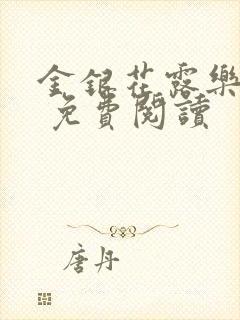 金銀花露樂
免費閱讀
唐丹